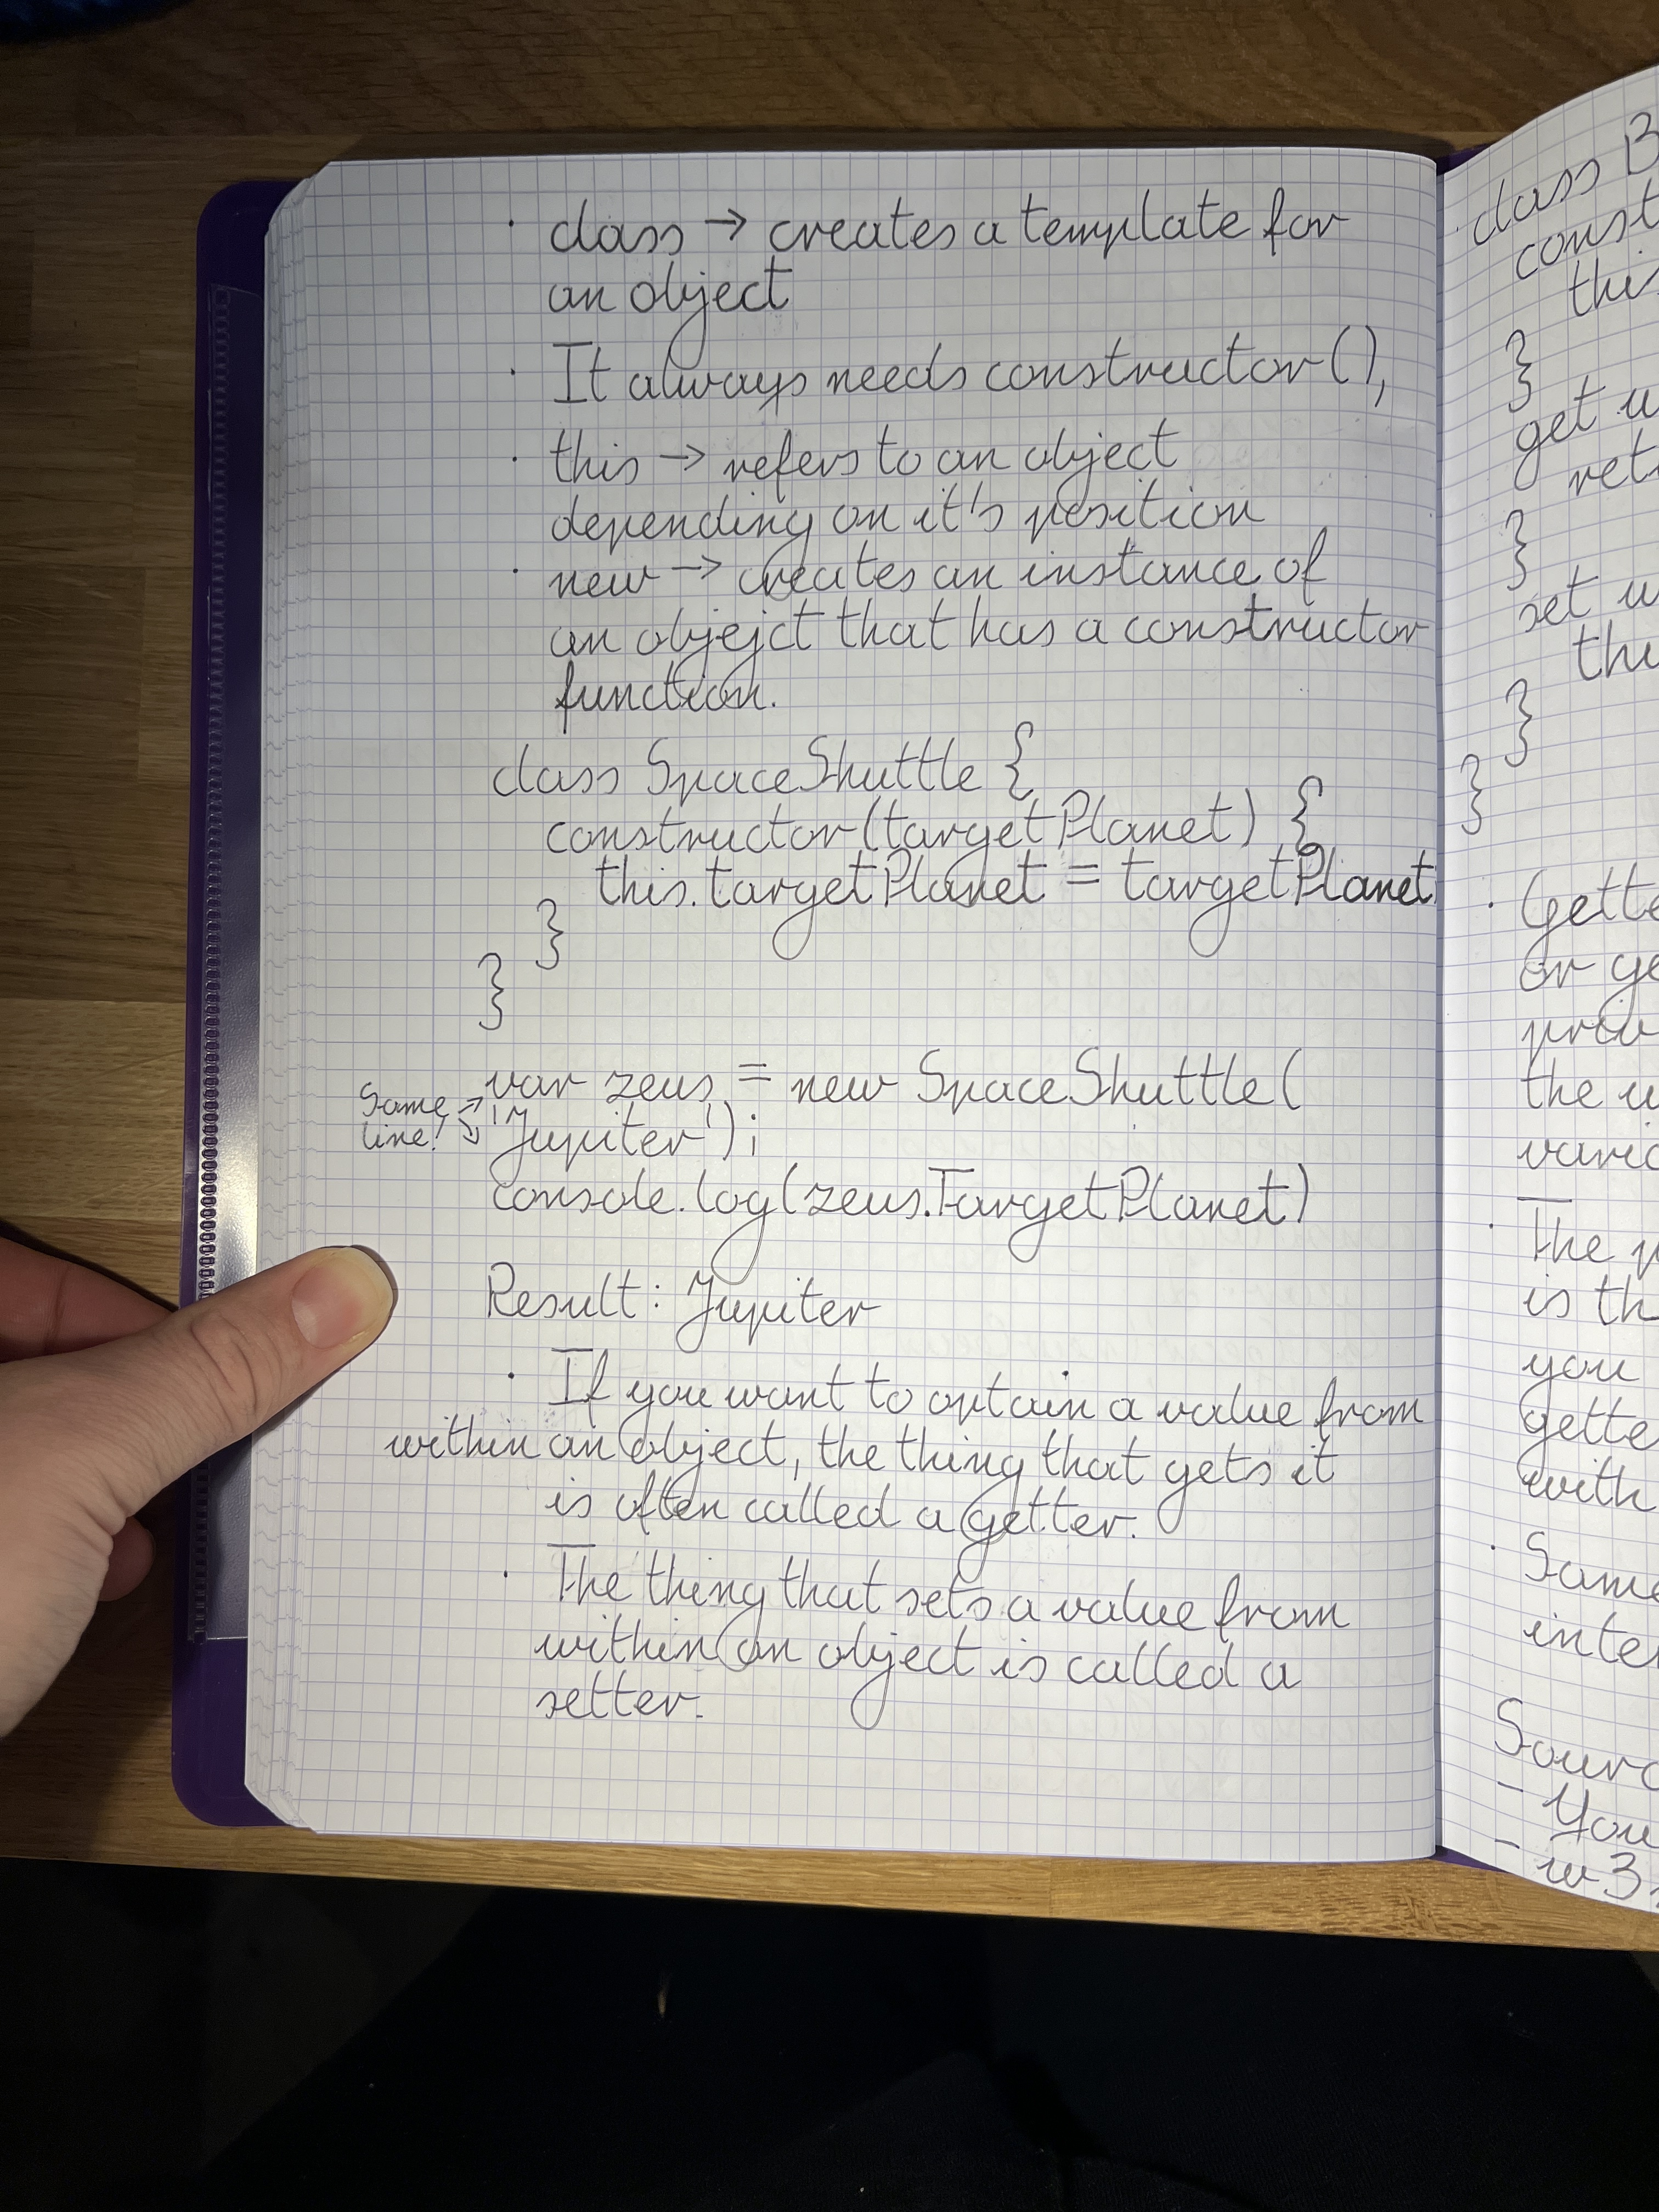 · class → creates a template for
an object
· It always needs constructor(),
· this → refers to an object
depending on it's position
· new → creates an instance of
an objejct that has a constructor
function.
class SpaceShuttle {
constructor(targetPlanet) {
this.targetPlanet = targetPlanet
}
}
Same line!
var zeus = new SpaceShuttle(
'Jupiter');
console.log(zeus.TargetPlanet)
Result: Jupiter
· If you want to optain a value from
within an object, the thing that gets it
is often called a getter.
· The thing that sets a value from
within an object is called a
setter.
· class B
const
this
}
get
}
set
}
}
or
the
The
is
you
with
· Same
- You